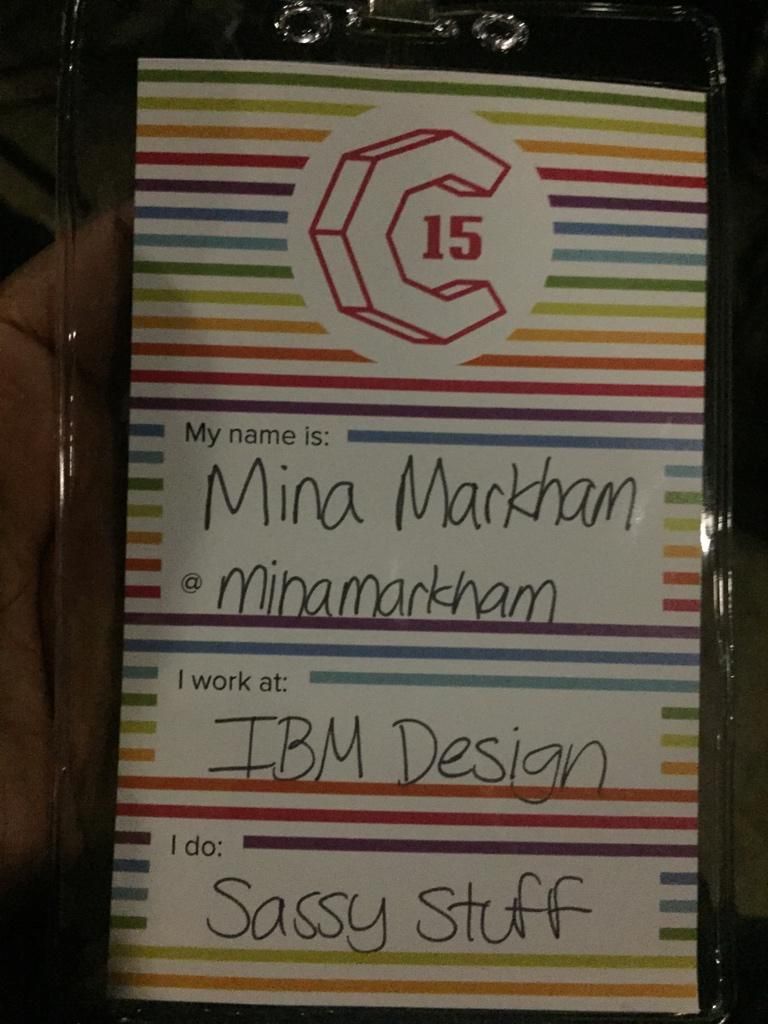 C
15
My name is:
Mina Markham
@ minamarkham
I work at:
IBM Design
I do:
Sassy Stuff